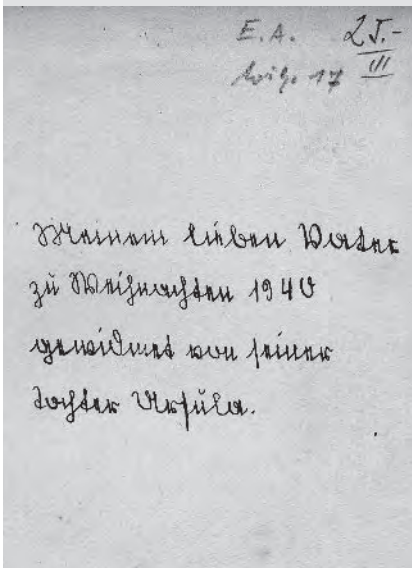 E.A. 25.-
17 III
Meinem lieben Vater
zu Weihnachten 1940
gewidmet von seiner
Tochter Ursula.